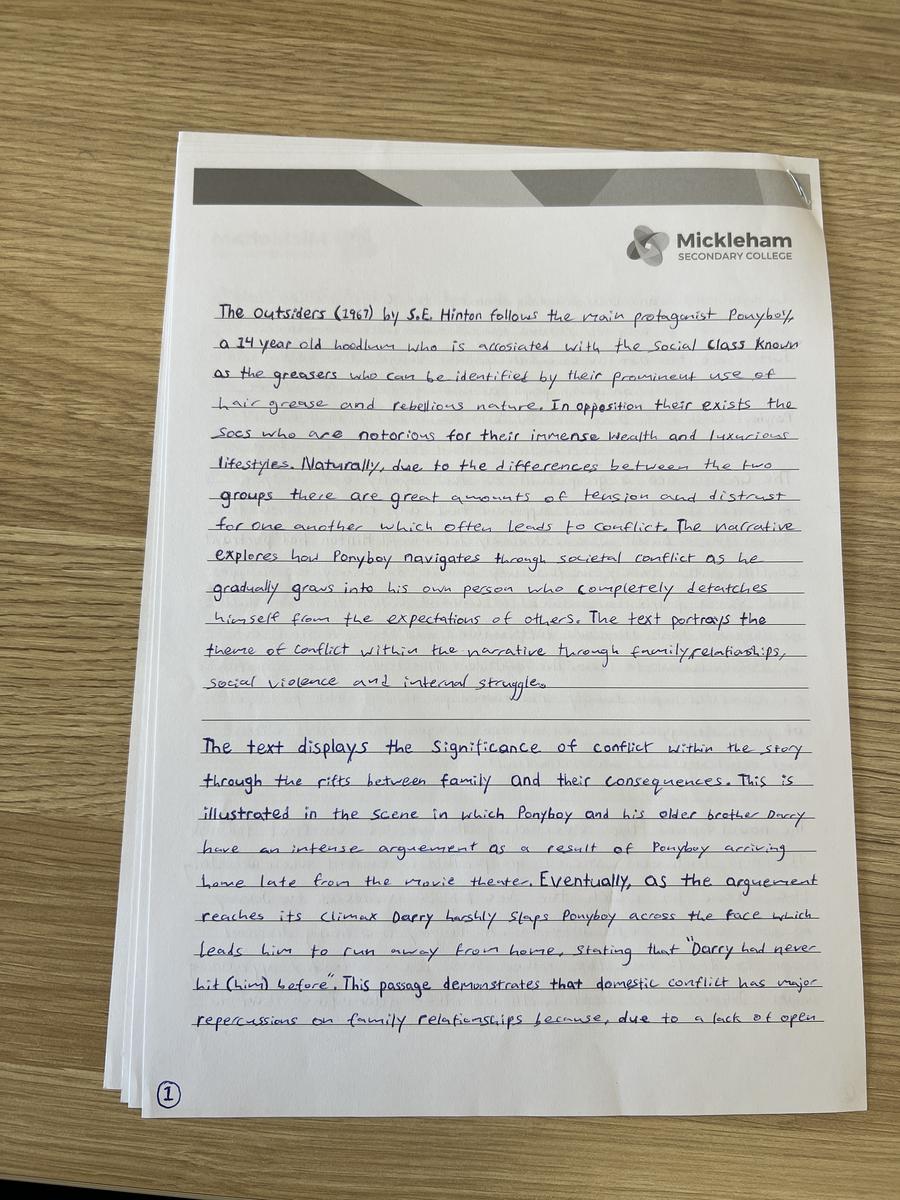 Mickleham
SECONDARY COLLEGE
The Outsiders (1967) by S.E. Hinton follows the main protagonist Ponyboy,
a 14 year old hoodlum who is accosiated with the Social Class known
as the greasers who can be identified by their prominent use of
hair grease and rebellious nature. In opposition their exists the
Socs who are notorious for their immense wealth and luxurious
lifestyles. Naturally, due to the differences between the two
groups there are great amounts of tension and distrust
for one another which often leads to conflict. The narrative
explores how Ponyboy navigates through societal conflict as he
gradually grows into his own person who completely detatches
himself from the expectations of others. The text portrays the
theme of conflict within the narrative through family relationships,
social violence and internal struggle.
The text displays the significance of conflict within the story
through the rifts between family and their consequences. This is
illustrated in the scene in which Ponyboy and his older brother Darry
have an intense arguement as a result of Ponyboy arriving
home late from the movie theater. Eventually, as the arguement
reaches its climax Darry harshly slaps Ponyboy across the face which
leads him to run away from home, stating that "Darry had never
hit (him) before". This passage demonstrates that domestic conflict has major
repercussions on family relationships because, due to a lack of open
1